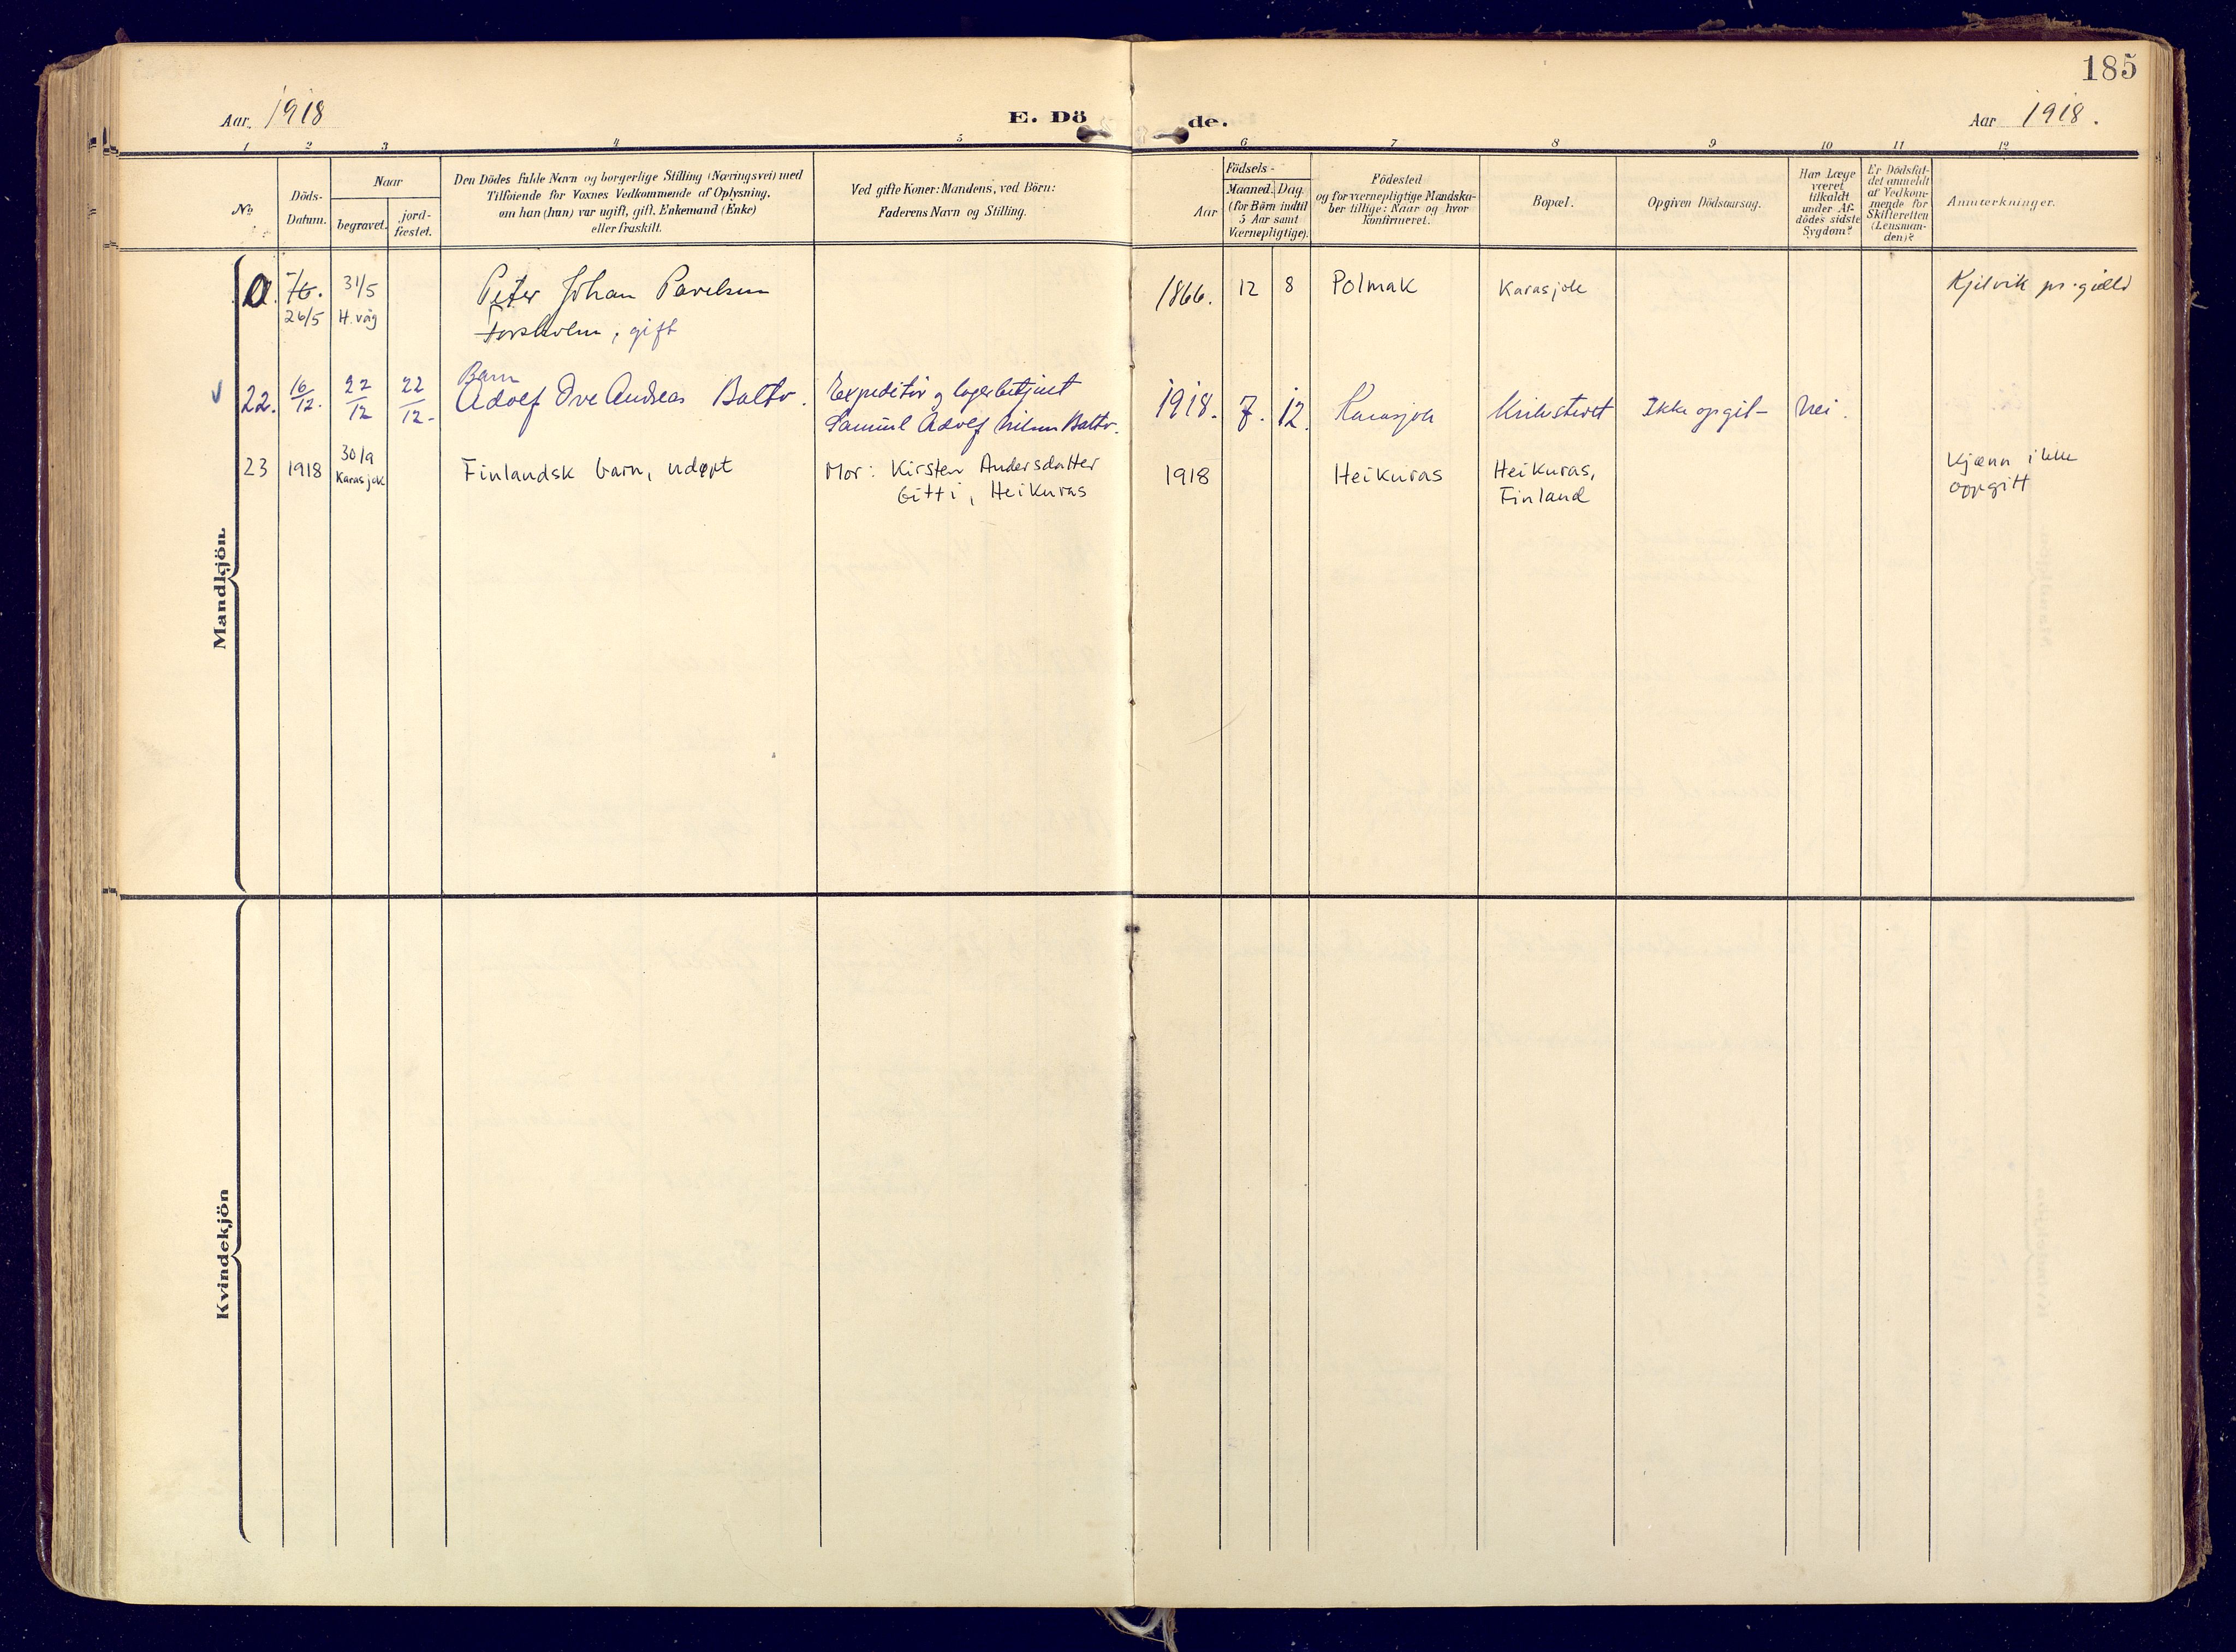 185
Aar 1918
E. Dö
de.
Aar 1918.
1 2 3 4 5 6 7 8 9 10 11 12
No
Döds-
Datum.
Naar
begravet.
jord-
fæstet.
Den Dödes fulde Navn og borgerlige Stilling (Næringsvei) med
Tilföiende for Voxnes Vedkommende af Oplysning,
om han (hun) var ugift, gift, Enkemand (Enke)
eller fraskilt.
Ved gifte Koner: Mandens, ved Börn:
Faderens Navn og Stilling.
Födsels-
Aar
Maaned. Dag.
(for Börn indtil
5 Aar samt
Værnepligtige).
Födested
og for værnepligtige Mandska-
ber tillige: Naar og hvor
konfirmeret.
Bopæl.
Opgiven Dödsaarsag.
Har Læge
været
tilkaldt
under Af-
dödes sidste
Sygdom?
Er Dödsfal-
det anmeldt
af Vedkom-
mende for
Skifteretten
(Lensman-
den)?
Anmærkninger.
Mandkjön.
31/5 Peter Johan Pavelsen 1866. 12 8 Polmak Karasjok Kjelvik pr.gjeld
26/5 H.våg Forsholm, gift
Barn
22. 16/12. 22/12 22/12. Adolf Ove Andreas Balto. Expeditör og lagerbetjent 1918. 7. 12. Karasjok Kirkestedet Ikke opgit Nei.
Samuel Adolf Nilsen Balto.
23 1918 30/9 Finlandsk barn, udøpt Mor: Kirsten Andersdatter 1918 Heikuras Heikuras, Kjønn ikke
Karasjok Gitti, Heikuras Finland oppgitt
Kvindekjön